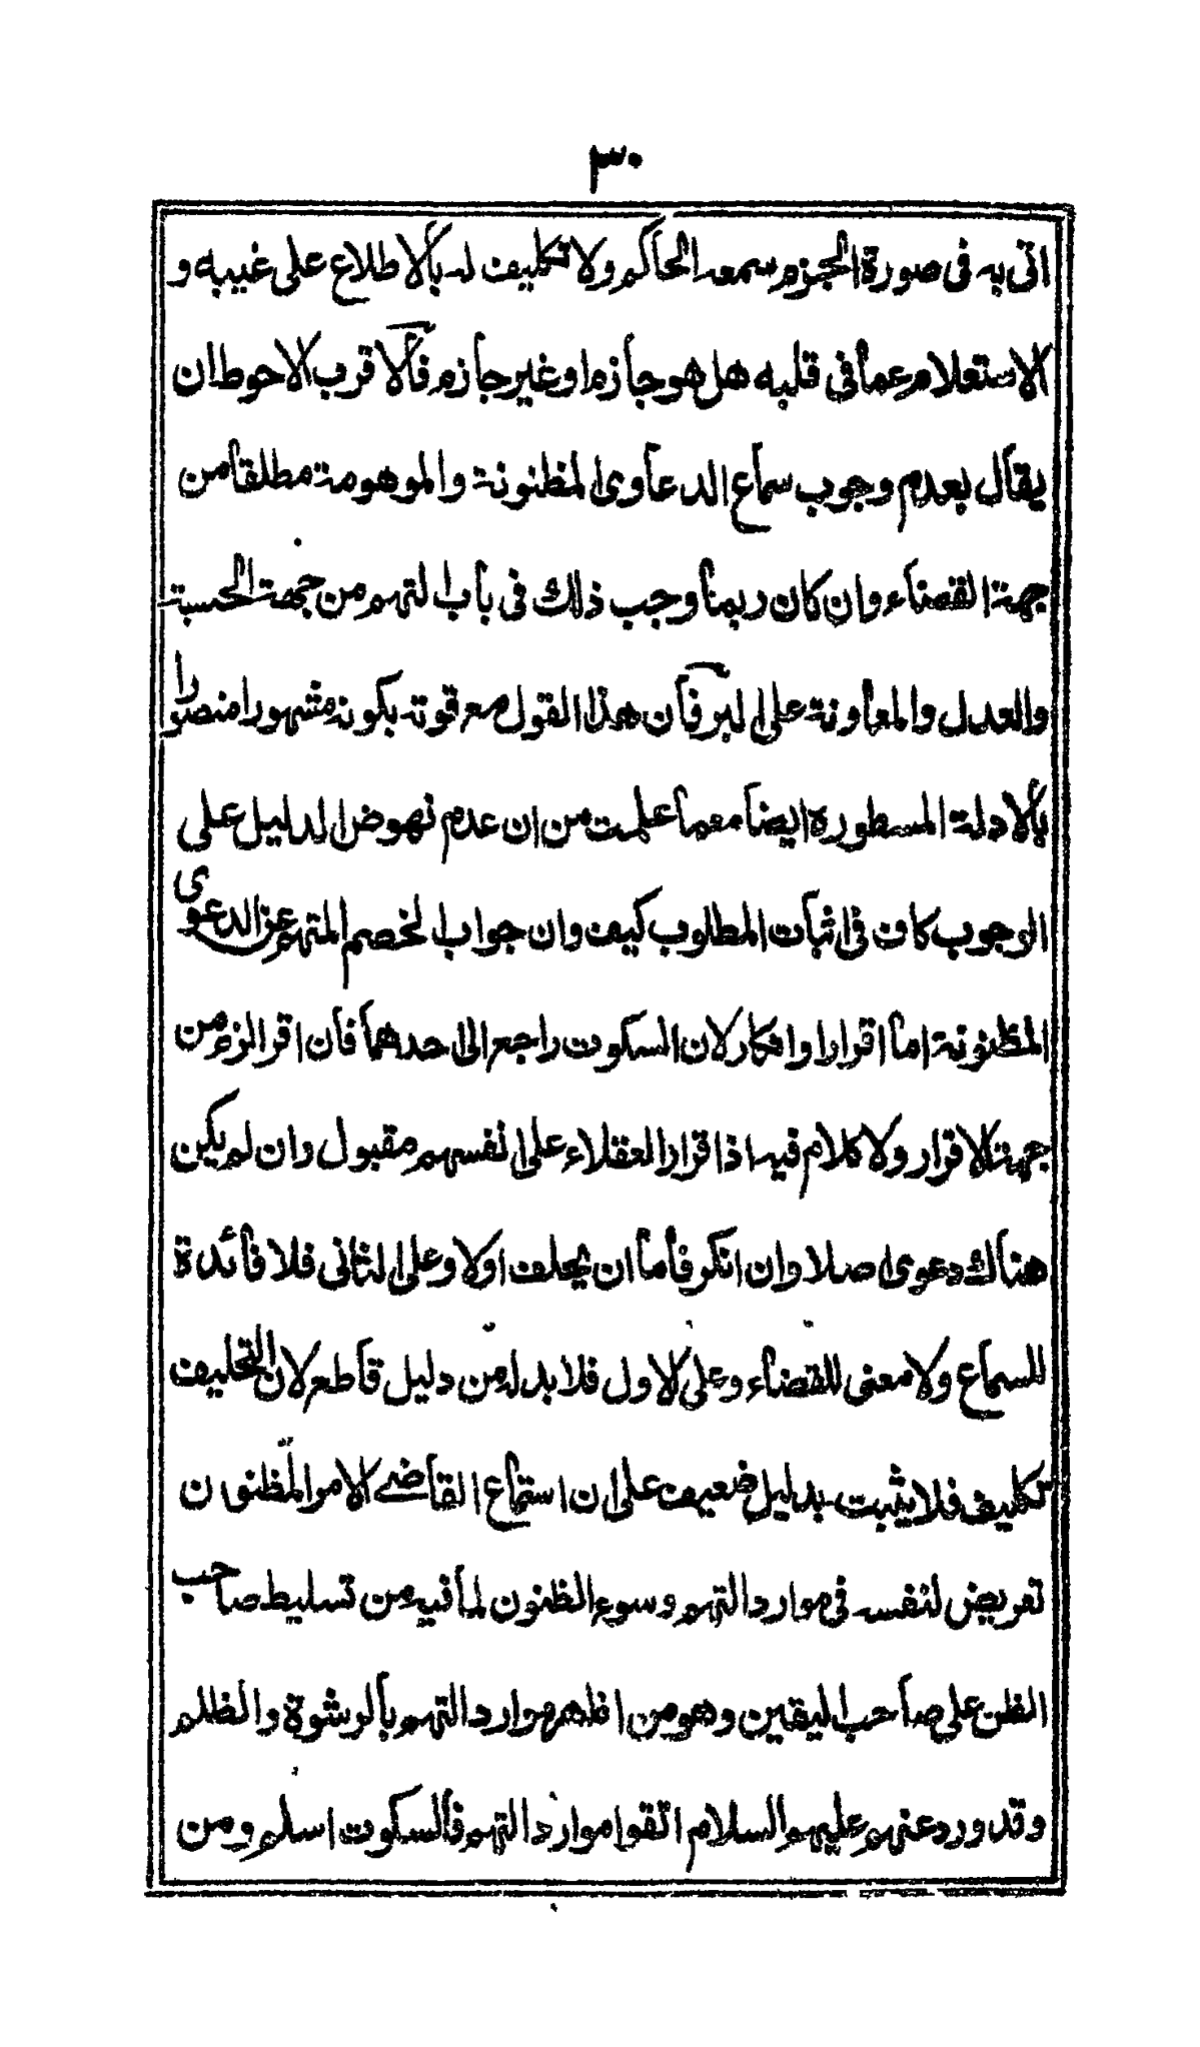 ٣٠
اتى به فى صورة الجزم سمعه الحاكم ولا تكليف له بالاطلاع على غيبه و
الاستعلام عما فى قلبه هل هو جازم او غير جازم فالاقرب الاحوط ان
يقال بعدم وجوب سماع الدعاوى المظنونة والموهومة مطلقا من
جهة القضاء وان كان ربما وجب ذلك فى باب التهم من جهة الحسبة
والعدل والمعاونة على البر فان هذا القول مع قوته بكونه مشهورا منصورا
بالادلة المسطورة ايضا معما علمت من ان عدم نهوض الدليل على
الوجوب كاف فى اثبات المطلوب كيف وان جواب الخصم المتهم عن الدعوى
المظنونة اما اقرار او انكار لان السكوت راجع الى احدهما فان اقر الزم من
جهة الاقرار ولا كلام فيه اذ اقرار العقلاء على انفسهم مقبول وان لم يكن
هناك دعوى اصلا وان انكر فاما ان يحلف اولا وعلى الثانى فلا فائدة
للسماع ولا معنى للقضاء وعلى الاول فلا بد له من دليل قاطع لان التحليف
تكليف فلا يثبت بدليل ضعيف على ان استماع القاضى الامر المظنون
تعريض لنفسه فى موارد التهم وسوء الظنون لما فيه من تسليط صاحب
الظن على صاحب اليقين وهو من اظهر موارد التهم بالرشوة والظلم
وقد ورد عنهم عليهم السلام اتقوا موارد التهم فالسكوت اسلم ومن